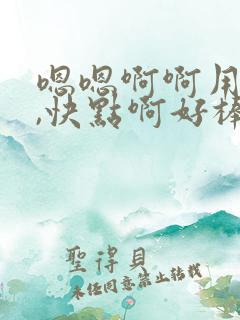 嗯嗯啊啊用
,快點啊好棒
聖得貝
未經同意禁止轉載